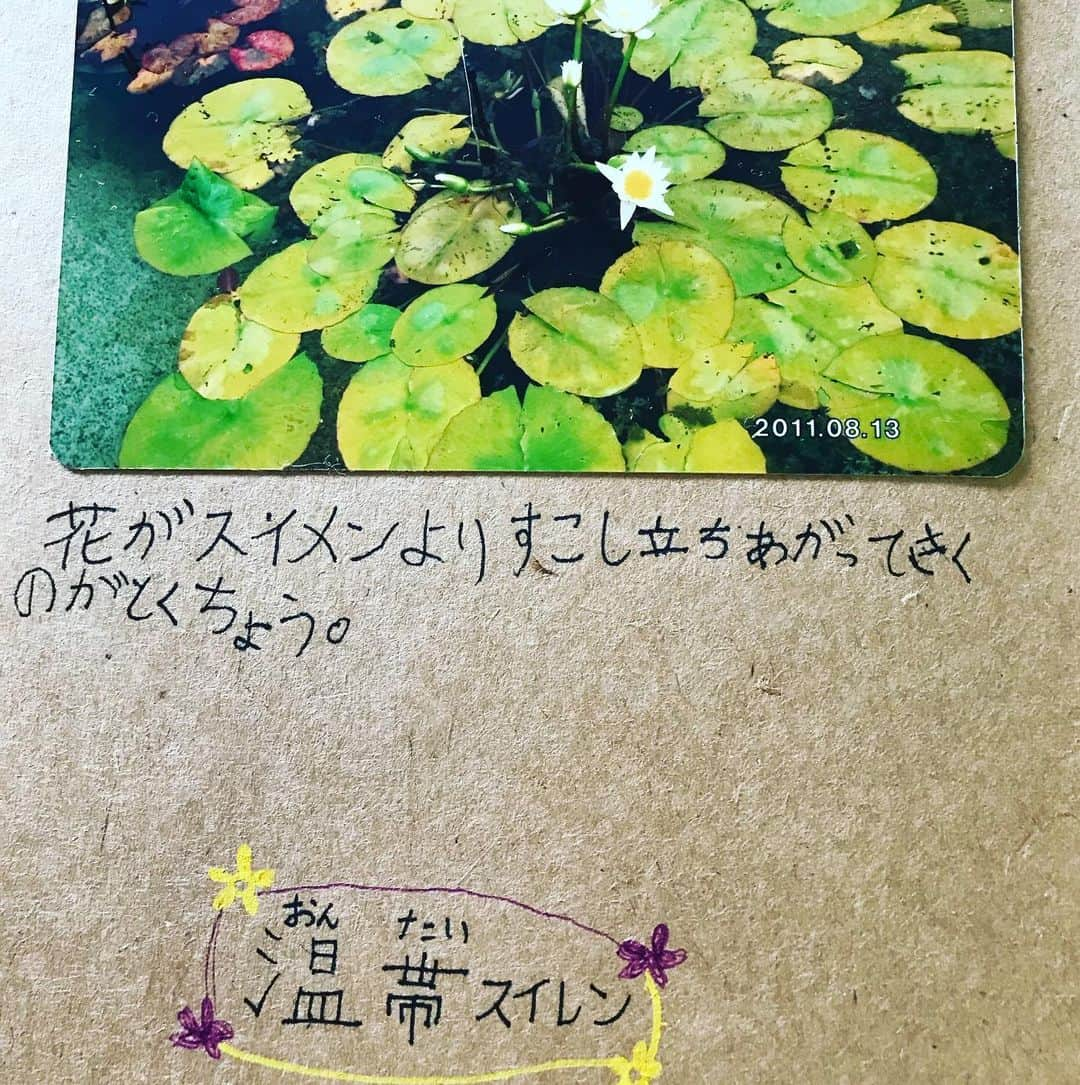 2011.08.13
花がスイメンよりすこし立ちあがってさく
のがとくちょう。
おん たい
温帯スイレン